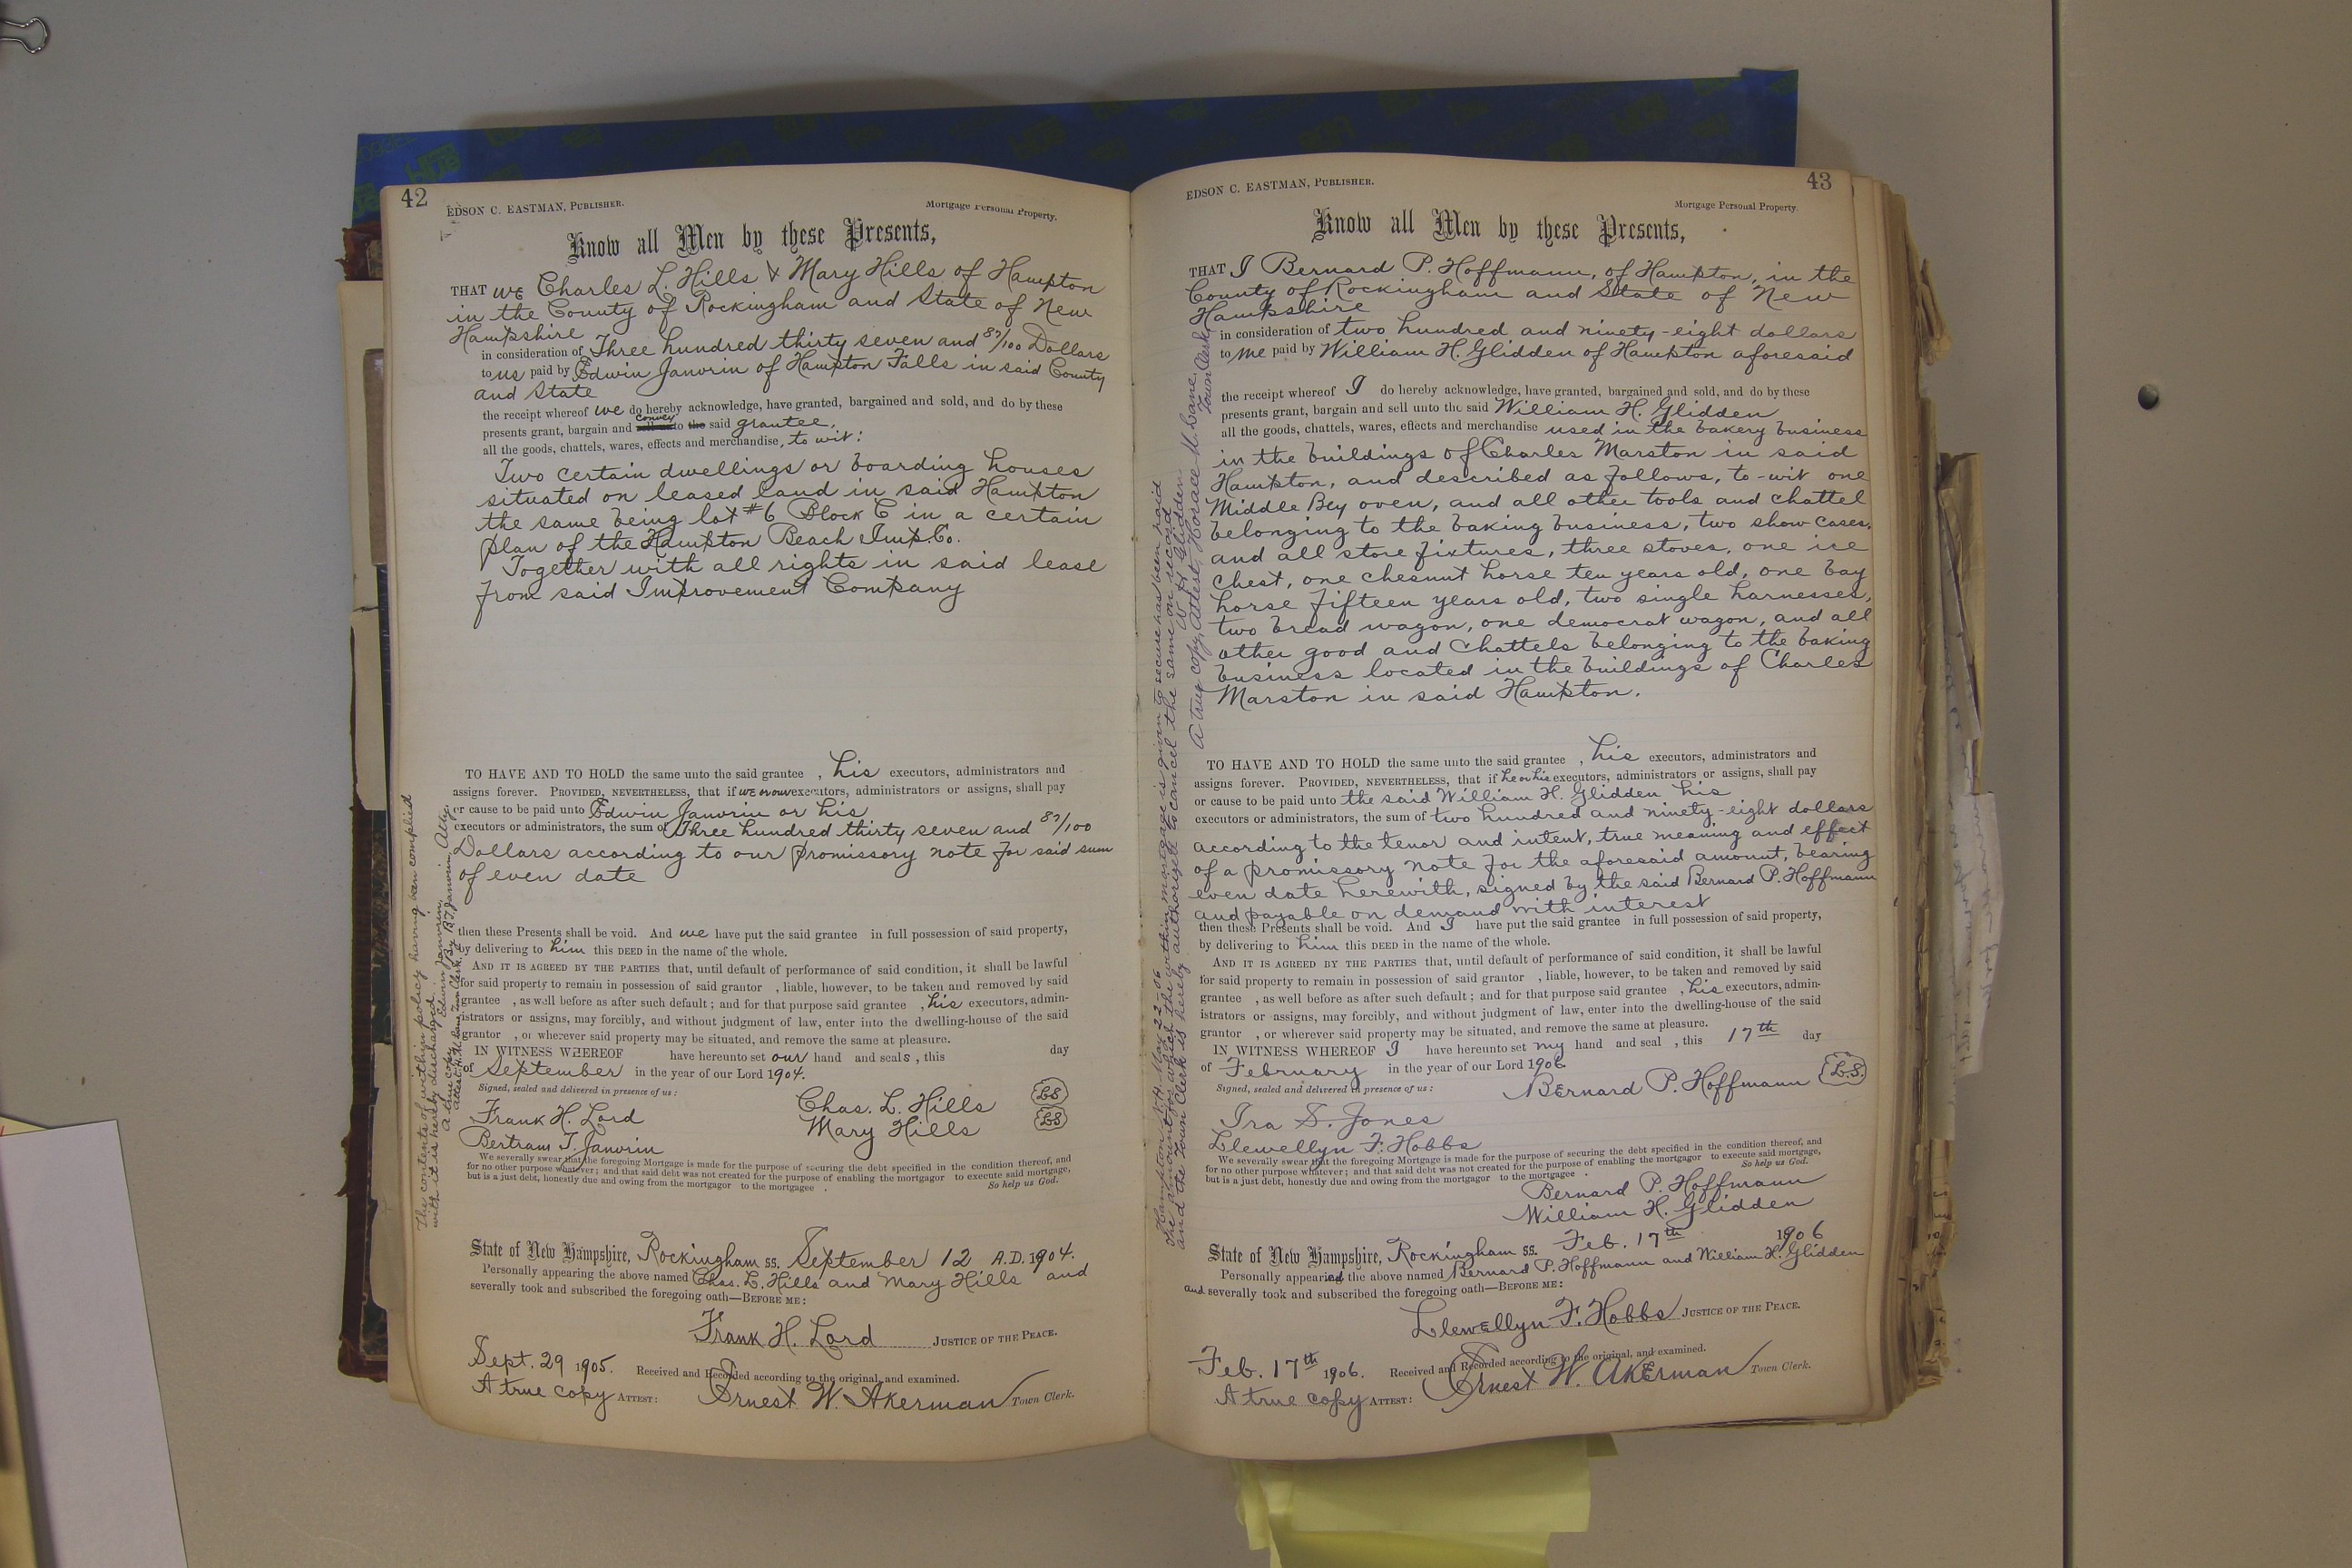 42
EDSON C. EASTMAN, PUBLISHER.
Mortgage Personal Property.
Know all Men by these Presents,
THAT we Charles L. Hills & Mary Hills of Hampton
in the County of Rockingham and State of New
Hampshire
in consideration of Three hundred thirty seven and 87/100 Dollars
to us paid by Edwin Janvrin of Hampton Falls in said County
and State
the receipt whereof we do hereby acknowledge, have granted, bargained and sold, and do by these
convey
presents grant, bargain and sell unto the said grantee,
all the goods, chattels, wares, effects and merchandise, to wit:
Two certain dwellings or boarding houses
situated on leased land in said Hampton
the same being lot #6 Block C in a certain
plan of the Hampton Beach Imp. Co.
Together with all rights in said lease
from said Improvement Company
TO HAVE AND TO HOLD the same unto the said grantee , his executors, administrators and
assigns forever. PROVIDED, NEVERTHELESS, that if we or our executors, administrators or assigns, shall pay
or cause to be paid unto Edwin Janvrin or his
executors or administrators, the sum of Three hundred thirty seven and 87/100
Dollars according to our promissory note for said sum
of even date
then these Presents shall be void. And we have put the said grantee in full possession of said property,
by delivering to him this DEED in the name of the whole.
AND IT IS AGREED BY THE PARTIES that, until default of performance of said condition, it shall be lawful
for said property to remain in possession of said grantor , liable, however, to be taken and removed by said
grantee , as well before as after such default; and for that purpose said grantee , his executors, admin-
istrators or assigns, may forcibly, and without judgment of law, enter into the dwelling-house of the said
grantor , or wherever said property may be situated, and remove the same at pleasure.
IN WITNESS WHEREOF have hereunto set our hand and seals, this day
of September in the year of our Lord 1904.
Signed, sealed and delivered in presence of us:
Chas. L. Hills LS
Frank H. Lord
Mary Hills LS
Bertram T. Janvrin
We severally swear that the foregoing Mortgage is made for the purpose of securing the debt specified in the condition thereof, and
for no other purpose whatever; and that said debt was not created for the purpose of enabling the mortgagor to execute said mortgage,
but is a just debt, honestly due and owing from the mortgagor to the mortgagee . So help us God.
State of New Hampshire, Rockingham ss. September 12 A.D. 1904.
Personally appearing the above named Chas. L. Hills and Mary Hills and
severally took and subscribed the foregoing oath—BEFORE ME:
Frank H. Lord JUSTICE OF THE PEACE.
Sept. 29 1905. Received and Recorded according to the original, and examined.
A true copy ATTEST: Ernest W. Akerman Town Clerk.
The contents of within policy having been complied
with it is hereby discharged.
Edwin Janvrin,
By B.T. Janvrin, Atty.
A true copy
Attest: H.M. Lane Town Clerk
43
EDSON C. EASTMAN, PUBLISHER.
Mortgage Personal Property.
Know all Men by these Presents,
THAT I Bernard P. Hoffmann, of Hampton, in the
County of Rockingham and State of New
Hampshire
in consideration of two hundred and ninety-eight dollars
to me paid by William H. Glidden of Hampton aforesaid
the receipt whereof I do hereby acknowledge, have granted, bargained and sold, and do by these
presents grant, bargain and sell unto the said William H. Glidden
all the goods, chattels, wares, effects and merchandise used in the bakery business
in the buildings of Charles Marston in said
Hampton, and described as follows, to-wit one
Middle Bey oven, and all other tools and chattel
belonging to the baking business, two show cases,
and all store fixtures, three stoves, one ice
chest, one chesnut horse ten years old, one bay
horse fifteen years old, two single harnesses,
two bread wagon, one democrat wagon, and all
other good and chattels belonging to the baking
business located in the buildings of Charles
Marston in said Hampton.
TO HAVE AND TO HOLD the same unto the said grantee , his executors, administrators and
assigns forever. PROVIDED, NEVERTHELESS, that if he or his executors, administrators or assigns, shall pay
or cause to be paid unto the said William H. Glidden his
executors or administrators, the sum of two hundred and ninety-eight dollars
according to the tenor and intent, true meaning and effect
of a promissory note for the aforesaid amount, bearing
even date herewith, signed by the said Bernard P. Hoffmann
and payable on demand with interest
then these Presents shall be void. And I have put the said grantee in full possession of said property,
by delivering to him this DEED in the name of the whole.
AND IT IS AGREED BY THE PARTIES that, until default of performance of said condition, it shall be lawful
for said property to remain in possession of said grantor , liable, however, to be taken and removed by said
grantee , as well before as after such default; and for that purpose said grantee , his executors, admin-
istrators or assigns, may forcibly, and without judgment of law, enter into the dwelling-house of the said
grantor , or wherever said property may be situated, and remove the same at pleasure.
IN WITNESS WHEREOF I have hereunto set my hand and seal , this 17th day
of February in the year of our Lord 1906
Signed, sealed and delivered in presence of us:
Bernard P. Hoffmann L.S.
Ira S. Jones
Llewellyn F. Hobbs
We severally swear that the foregoing Mortgage is made for the purpose of securing the debt specified in the condition thereof, and
for no other purpose whatever; and that said debt was not created for the purpose of enabling the mortgagor to execute said mortgage,
but is a just debt, honestly due and owing from the mortgagor to the mortgagee . So help us God.
Bernard P. Hoffmann
William H. Glidden
State of New Hampshire, Rockingham ss. Feb. 17th 1906
Personally appeared the above named Bernard P. Hoffmann and William H. Glidden
and severally took and subscribed the foregoing oath—BEFORE ME:
Llewellyn F. Hobbs JUSTICE OF THE PEACE.
Feb. 17th 1906. Received and Recorded according to the original, and examined.
A true copy ATTEST: Ernest W. Akerman Town Clerk.
Hampton N.H. May 22-06
The amount for which the within mortgage is given to secure has been paid
and the Town Clerk is hereby authorized to cancel the same on record
W H Glidden
A true copy, Attest, Horace M. Lane,
Town Clerk